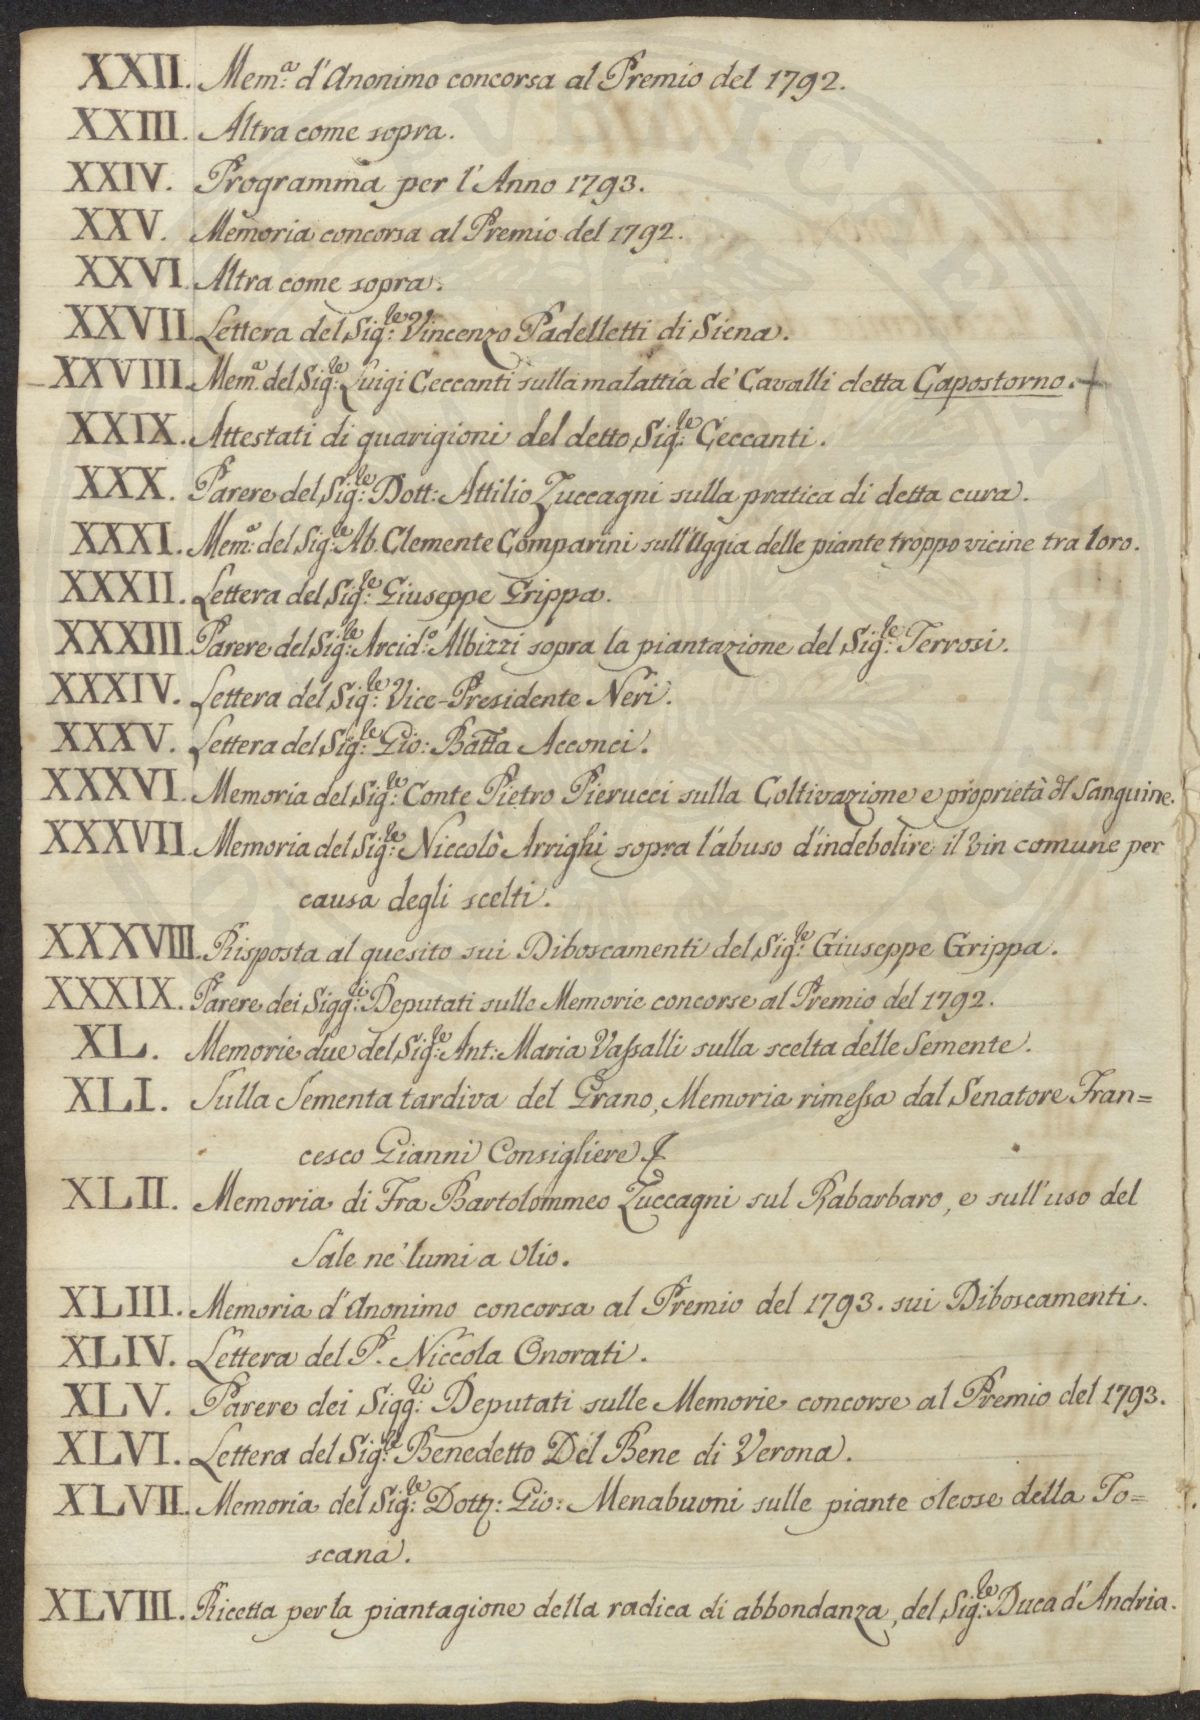 XXII. Mem.ª d'Anonimo concorsa al Premio del 1792.
XXIII. Altra come sopra.
XXIV. Programma per l'Anno 1793.
XXV. Memoria concorsa al Premio del 1792.
XXVI. Altra come sopra.
XXVII. Lettera del Sig.le Vincenzo Padelletti di Siena.
XXVIII. Mem.ª del Sig.le Luigi Ceccanti sulla malattia de' Cavalli detta Capostorno. +
XXIX. Attestati di guarigioni del detto Sig.le Ceccanti.
XXX. Parere del Sig.le Dott: Attilio Zuccagni sulla pratica di detta cura.
XXXI. Mem.ª del Sig.le Ab. Clemente Comparini sull'Uggia delle piante troppo vicine tra loro.
XXXII. Lettera del Sig.le Giuseppe Grippa.
XXXIII. Parere del Sig.le Arcid.º Albizzi sopra la piantazione del Sig.le Terrosi.
XXXIV. Lettera del Sig.le Vice-Presidente Neri.
XXXV. Lettera del Sig.le Gio: Batta Acconci.
XXXVI. Memoria del Sig.le Conte Pietro Pierucci sulla Coltivazione e proprietà dl Sanguine.
XXXVII. Memoria del Sig.le Niccolò Arrighi sopra l'abuso d'indebolire il vin comune per
causa degli scelti.
XXXVIII. Risposta al quesito sui Diboscamenti del Sig.le Giuseppe Grippa.
XXXIX. Parere dei Sigg.ri Deputati sulle Memorie concorse al Premio del 1792.
XL. Memorie due del Sig.le Ant: Maria Vaſsalli sulla scelta delle Semente.
XLI. Sulla Sementa tardiva del Grano, Memoria rimeſsa dal Senatore Fran=
cesco Gianni Consigliere
XLII. Memoria di Fra Bartolommeo Zuccagni sul Rabarbaro, e sull'uso del
Sale ne' lumi a Olio.
XLIII. Memoria d'Anonimo concorsa al Premio del 1793. sui Diboscamenti.
XLIV. Lettera del P. Niccola Onorati.
XLV. Parere dei Sigg.ri Deputati sulle Memorie concorse al Premio del 1793.
XLVI. Lettera del Sig.le Benedetto Del Bene di Verona.
XLVII. Memoria del Sig.le Dott: Gio: Menabuoni sulle piante oleose della To=
scana.
XLVIII. Ricetta per la piantagione della radica di abbondanza, del Sig.le Duca d'Andria.